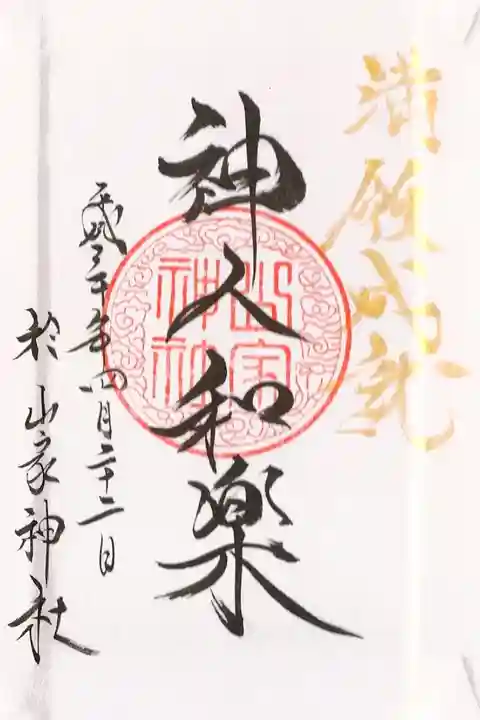 満願成就
神人和楽
山家
神社
平成三十年四月二十二日
於山家神社